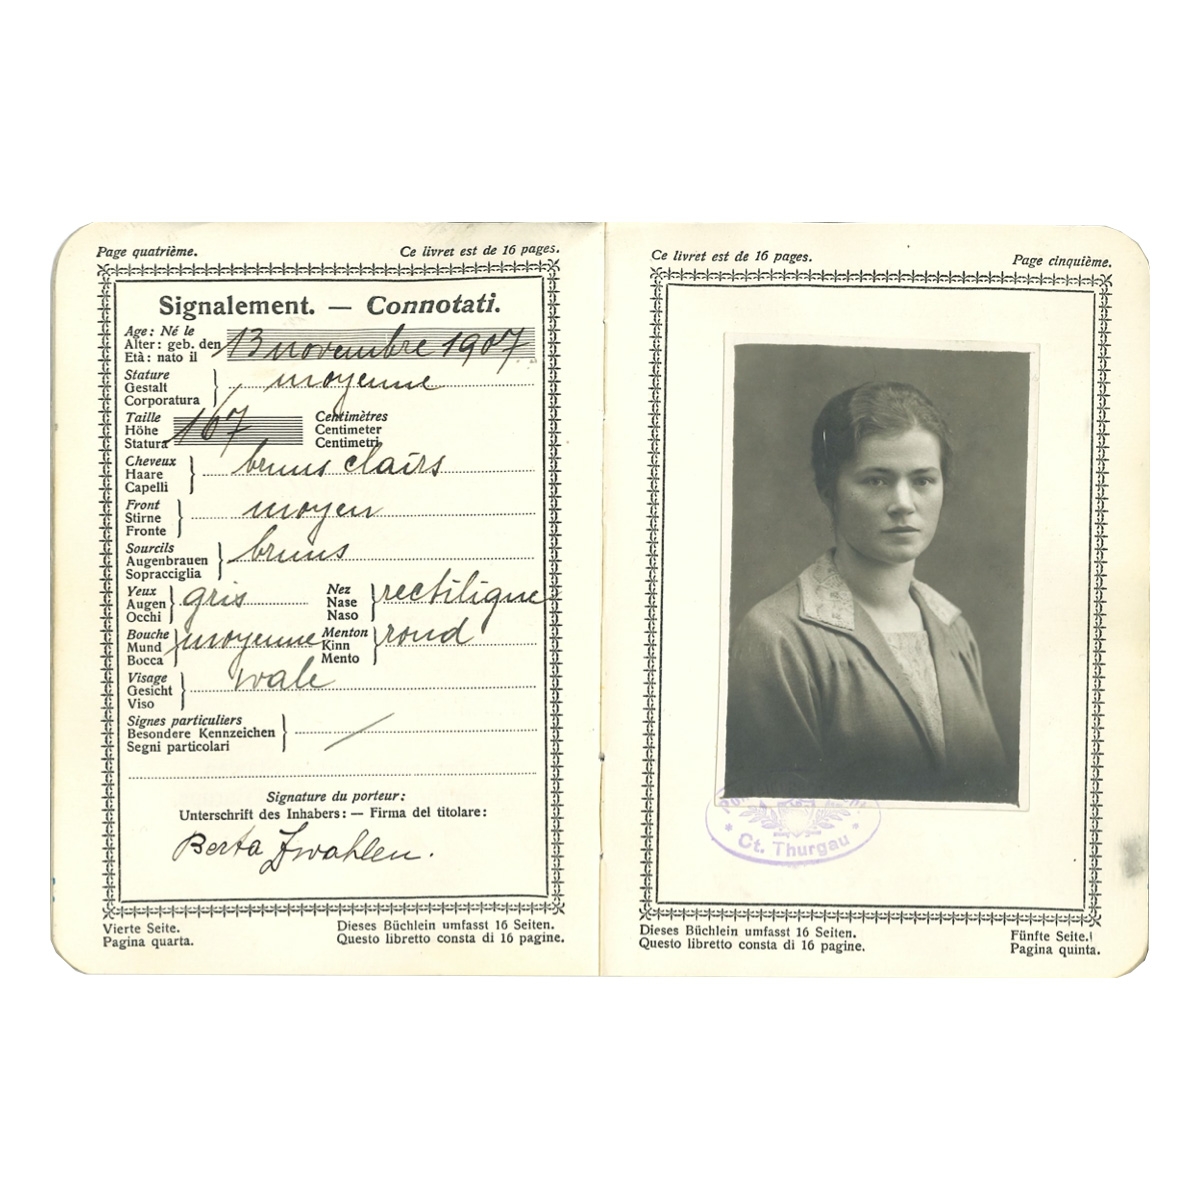 Page quatrième. Ce livret est de 16 pages.
Signalement. — Connotati.
Age: Né le
Alter: geb. den 13 novembre 1907
Età: nato il
Stature
Gestalt moyenne
Corporatura
Taille Centimètres
Höhe 167 Centimeter
Statura Centimetri
Cheveux
Haare bruns clairs
Capelli
Front
Stirne moyen
Fronte
Sourcils
Augenbrauen bruns
Sopracciglia
Yeux Nez
Augen gris Nase rectiligne
Occhi Naso
Bouche Menton
Mund moyenne Kinn rond
Bocca Mento
Visage
Gesicht ovale
Viso
Signes particuliers
Besondere Kennzeichen /
Segni particolari
Signature du porteur:
Unterschrift des Inhabers: — Firma del titolare:
Berta Zwahlen.
Vierte Seite. Dieses Büchlein umfasst 16 Seiten.
Pagina quarta. Questo libretto consta di 16 pagine.
Ce livret est de 16 pages. Page cinquième.
* Ct. Thurgau *
Dieses Büchlein umfasst 16 Seiten. Fünfte Seite.
Questo libretto consta di 16 pagine. Pagina quinta.